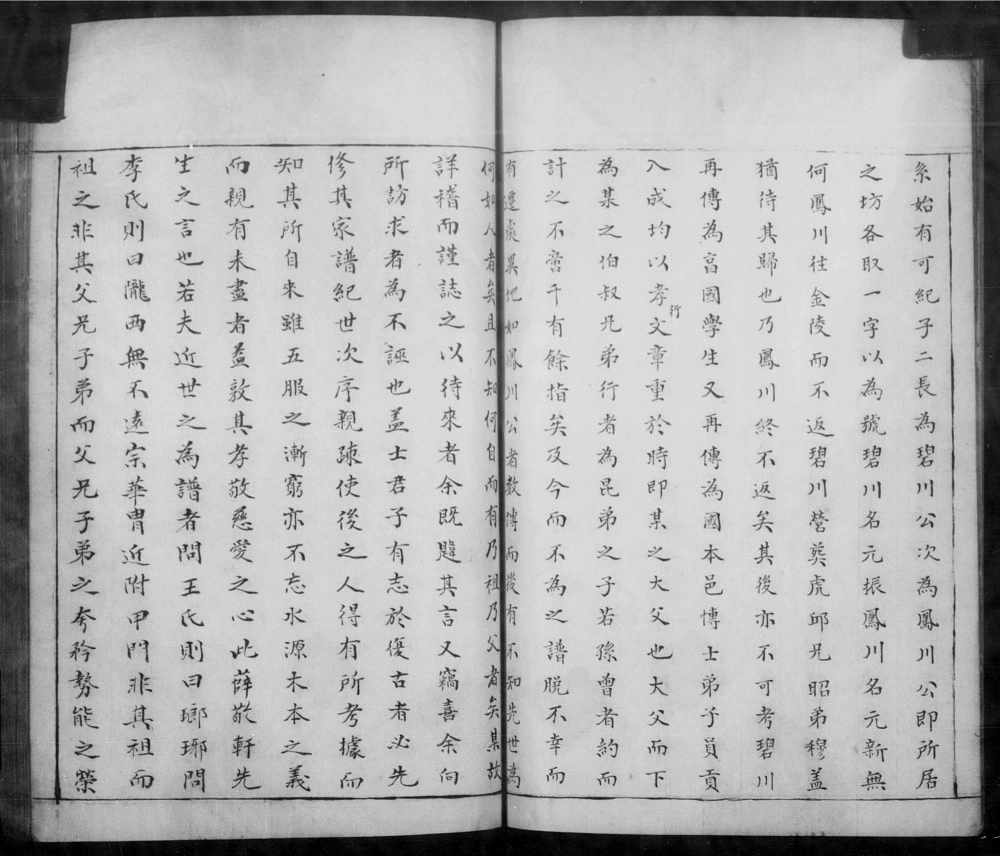 系始有可紀子二長為碧川公次為鳳川公即所居
之坊各取一字以為號碧川名元振鳳川名元新無
何鳳川往金陵而不返碧川營葬虎邱兄昭弟穆盖
猶待其歸也乃鳳川終不返矣其後亦不可考碧川
再傳為富國學生又再傳為國本邑博士弟子員貢
入成均以孝行文章重於時即某之大父也大父而下
為某之伯叔兄弟行者為昆弟之子若孫曾者約而
計之不啻千有餘指矣及今而不為之譜脫不幸而
有遷處異地如鳳川公者數傳而後有不知先世為
何如人者矣且不知何自而有乃祖乃父者矣某故
詳稽而謹誌之以待來者余既韙其言又竊喜余向
所訪求者為不誣也盖士君子有志於復古者必先
修其家譜紀世次序親疎使後之人得有所考據而
知其所自來雖五服之漸窮亦不忘水源木本之義
而親有未盡者益敦其孝敬慈愛之心此薛敬軒先
生之言也若夫近世之為譜者問王氏則曰瑯琊問
李氏則曰隴西無不遠宗華胄近附甲門非其祖而
祖之非其父兄子弟而父兄子弟之夸矜勢能之榮